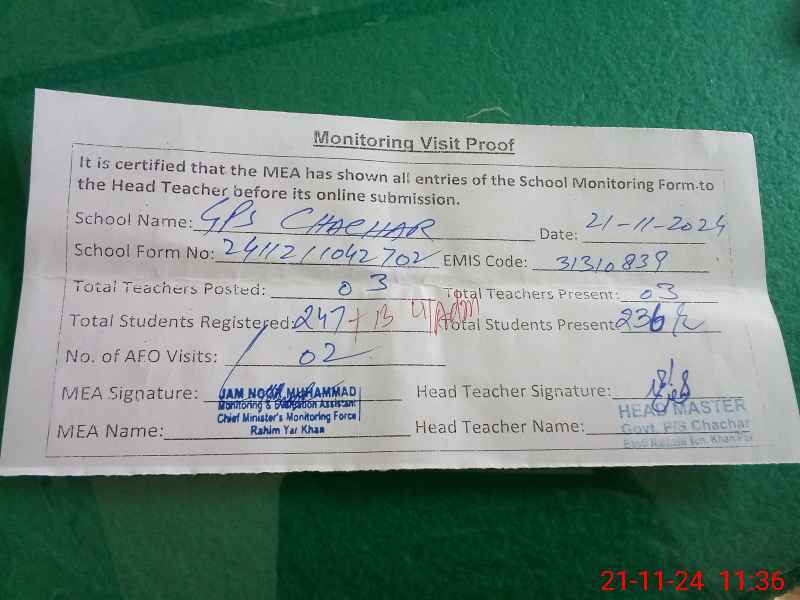 Monitoring Visit Proof
It is certified that the MEA has shown all entries of the School Monitoring Form to
the Head Teacher before its online submission.
School Name: GPS CHACHAR Date: 21-11-2024
School Form No: 2411211042702 EMIS Code: 31310839
Total Teachers Posted: 03 Total Teachers Present: 03
Total Students Registered: 247 + 13 Total Students Present 236
No. of AFO Visits: 02
MEA Signature: Head Teacher Signature:
JAM NOOR MUHAMMAD
Monitoring & Evaluation Assistant
Chief Minister's Monitoring Force
Rahim Yar Khan
MEA Name: Head Teacher Name:
HEAD MASTER
Govt. P/S Chachar
21-11-24 11:36